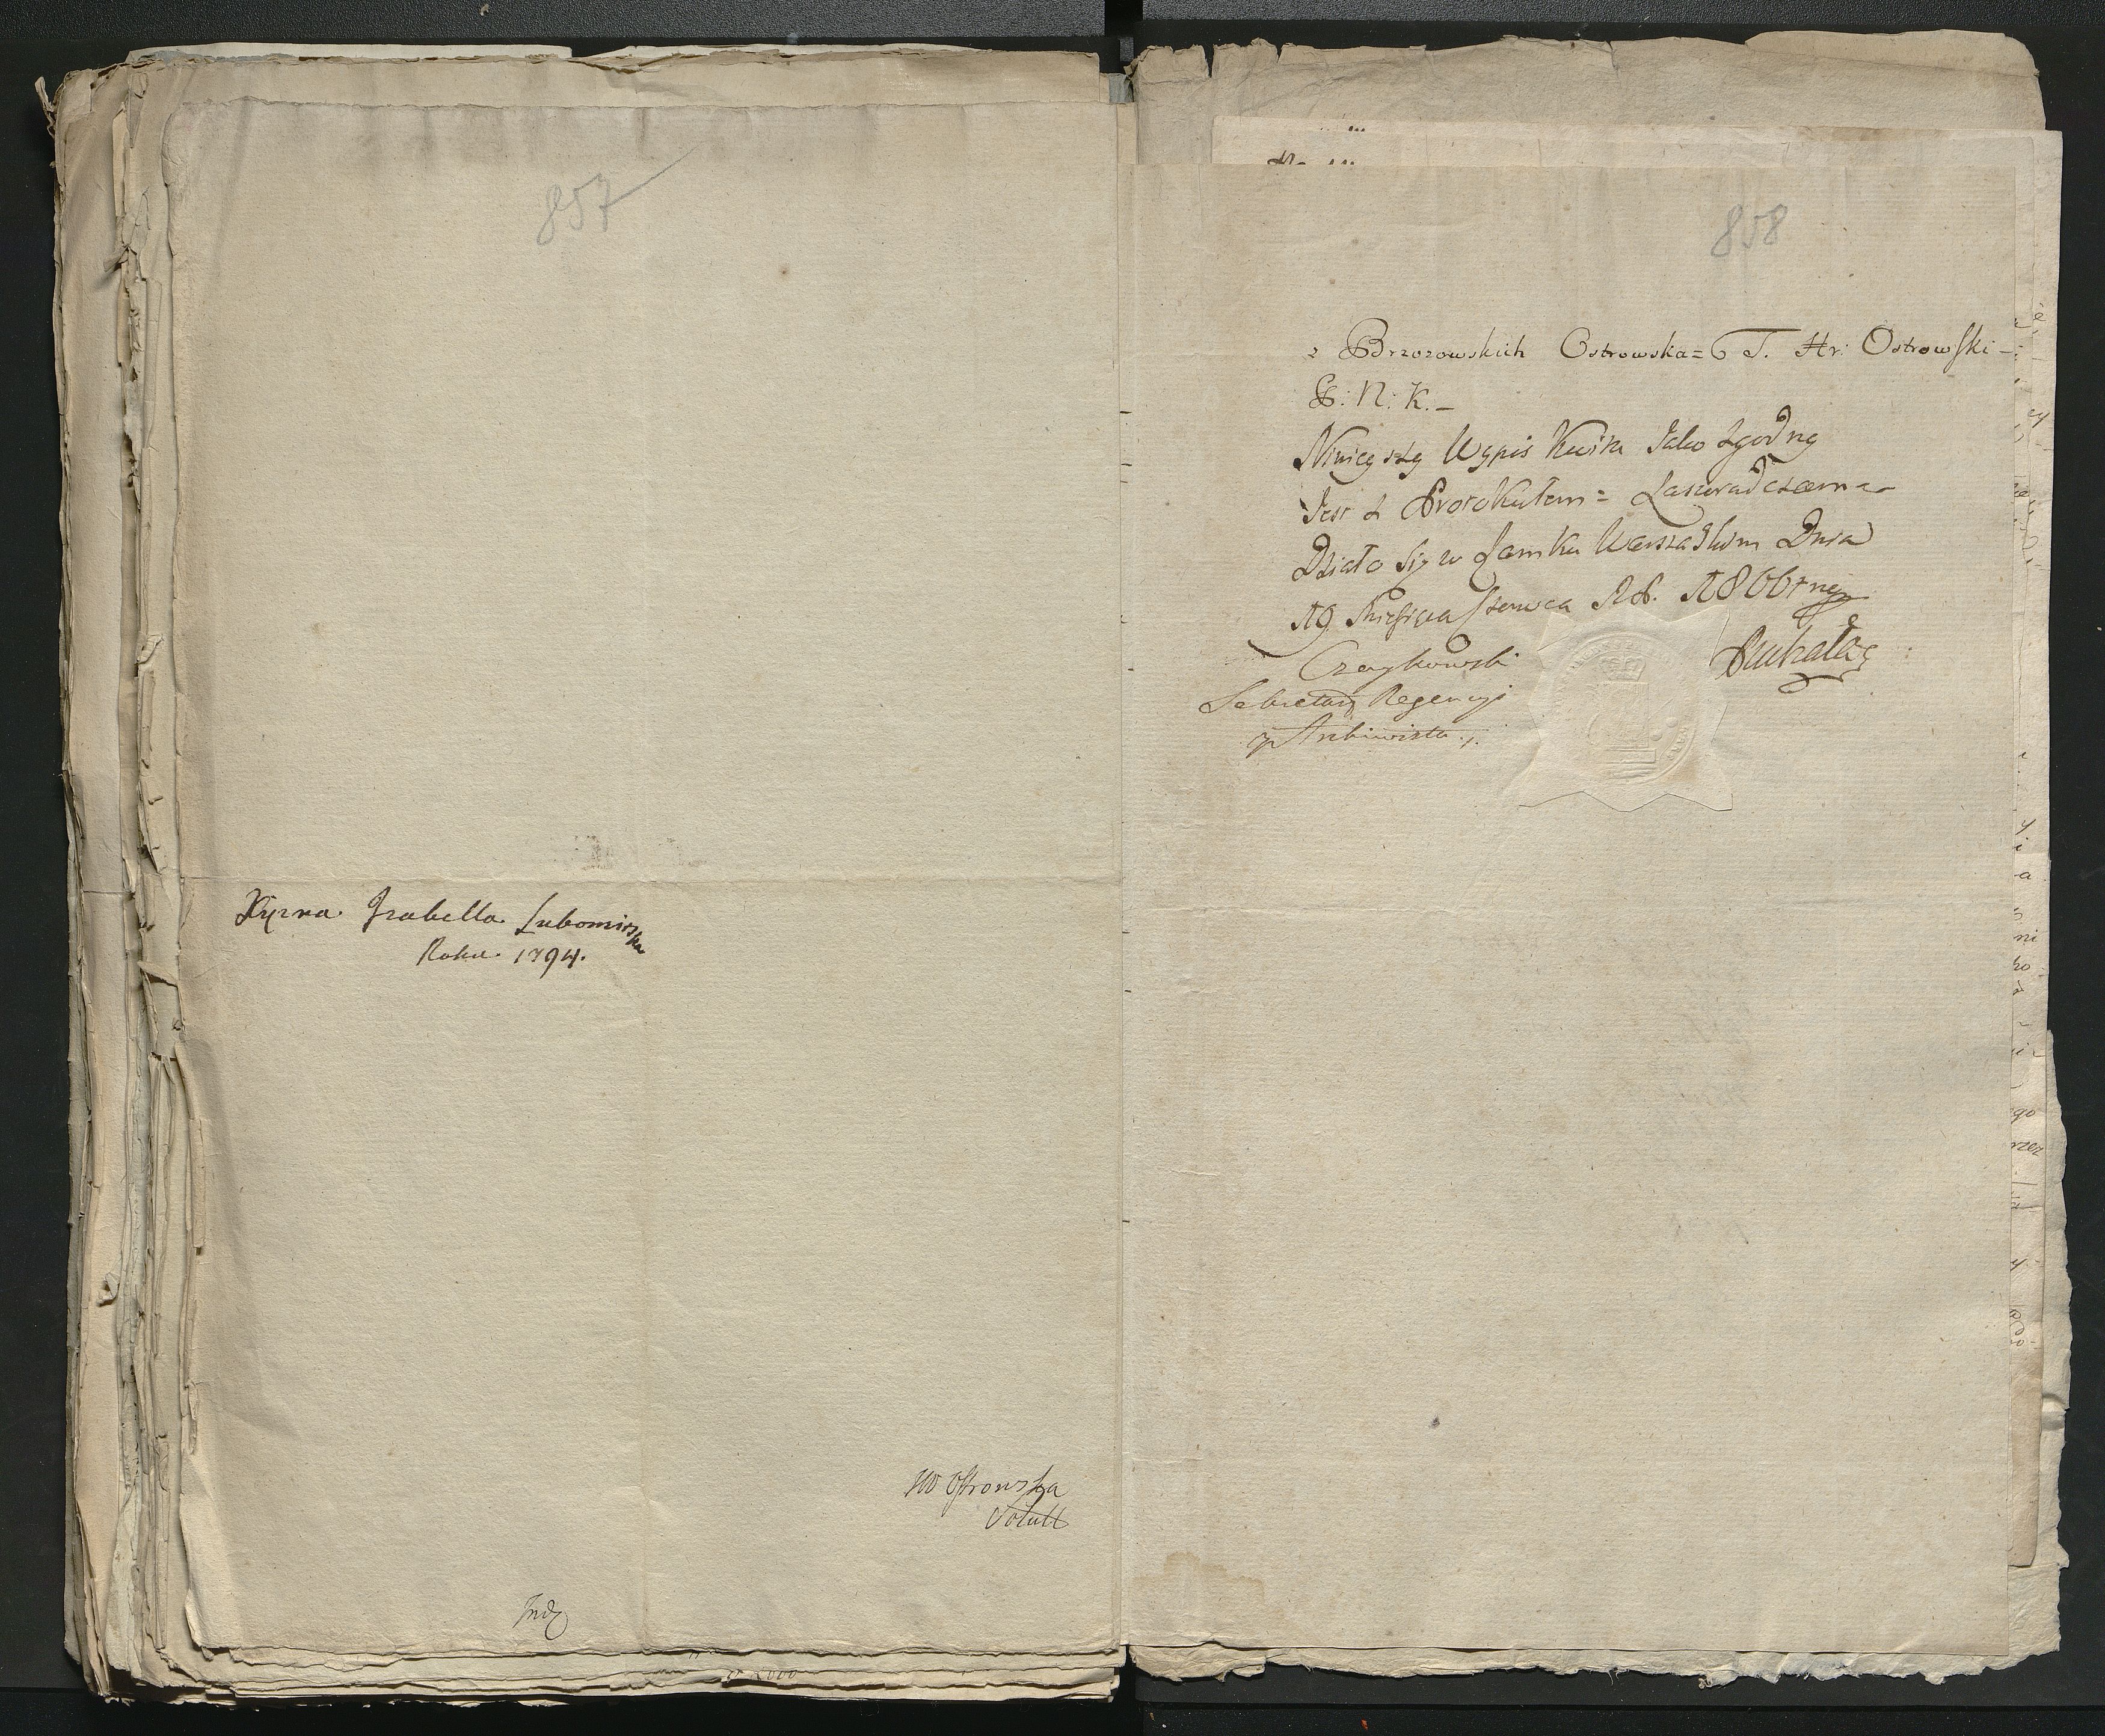 857
Xiężna Izabella Lubomirska
Roku 1794.
Ostrowska
Indz
858
z Brzozowskich Ostrowska = T. Hr: Ostrowski –
P: N: K. –
Ninieyszy Wypis Kwitu Jako Zgodny
Jest z Protokułem = Zaswiadczam –
Działo się w Zamku Warszaskim Dnia
19 Miesiąca Czerwca R. 1806tne
Czaykowski
Sekretarz Regencyi
y Archiwista